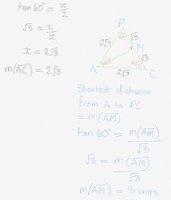 tan60° = x/2
√3 = x/2
x = 2√3
m(AC) = 2√3
P
2√3
√3
M
√3
A
2√3
C
Shortest distance
from A to PC
= m(AM)
tan60° = m(AM)/√3
√3 = m(AM)/√3
m(AM) = 3 units